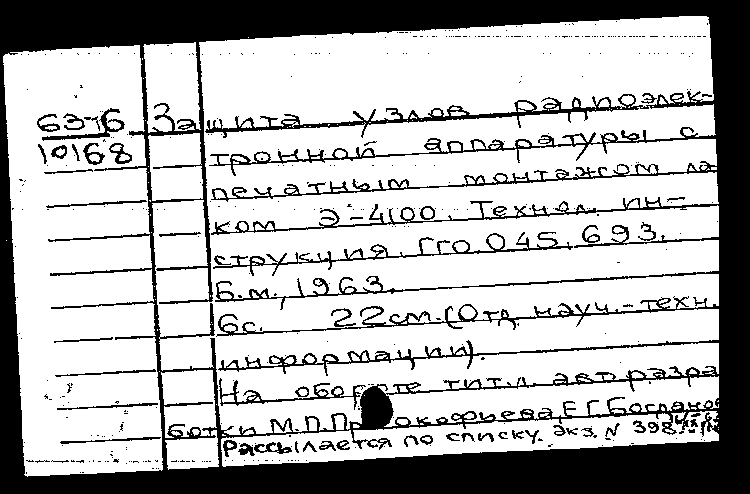 63-6 Защита узлов радиоэлек-
10168 тронной аппаратуры с
печатным монтажом ла
ком Э-4100. Технол. ин-
струкция. Гго.045.693.
Б.м., 1963.
6с. 22см. (Отд. науч.-техн.
информации).
На обороте тит.л. авт. разра
ботки М.П.Прокофьева, Е.Г.Богданов
Рассылается по списку. Экз. N 398